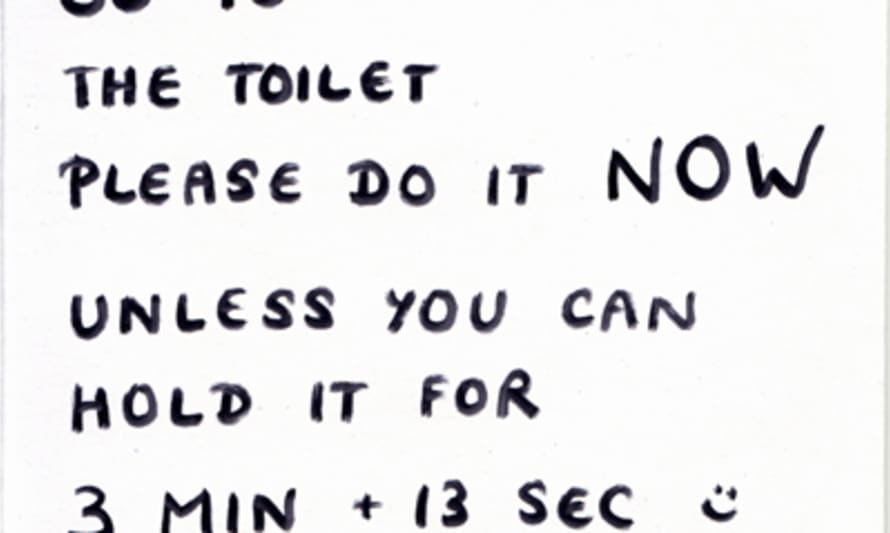 THE TOILET
PLEASE DO IT NOW
UNLESS YOU CAN
HOLD IT FOR
3 MIN + 13 SEC :)